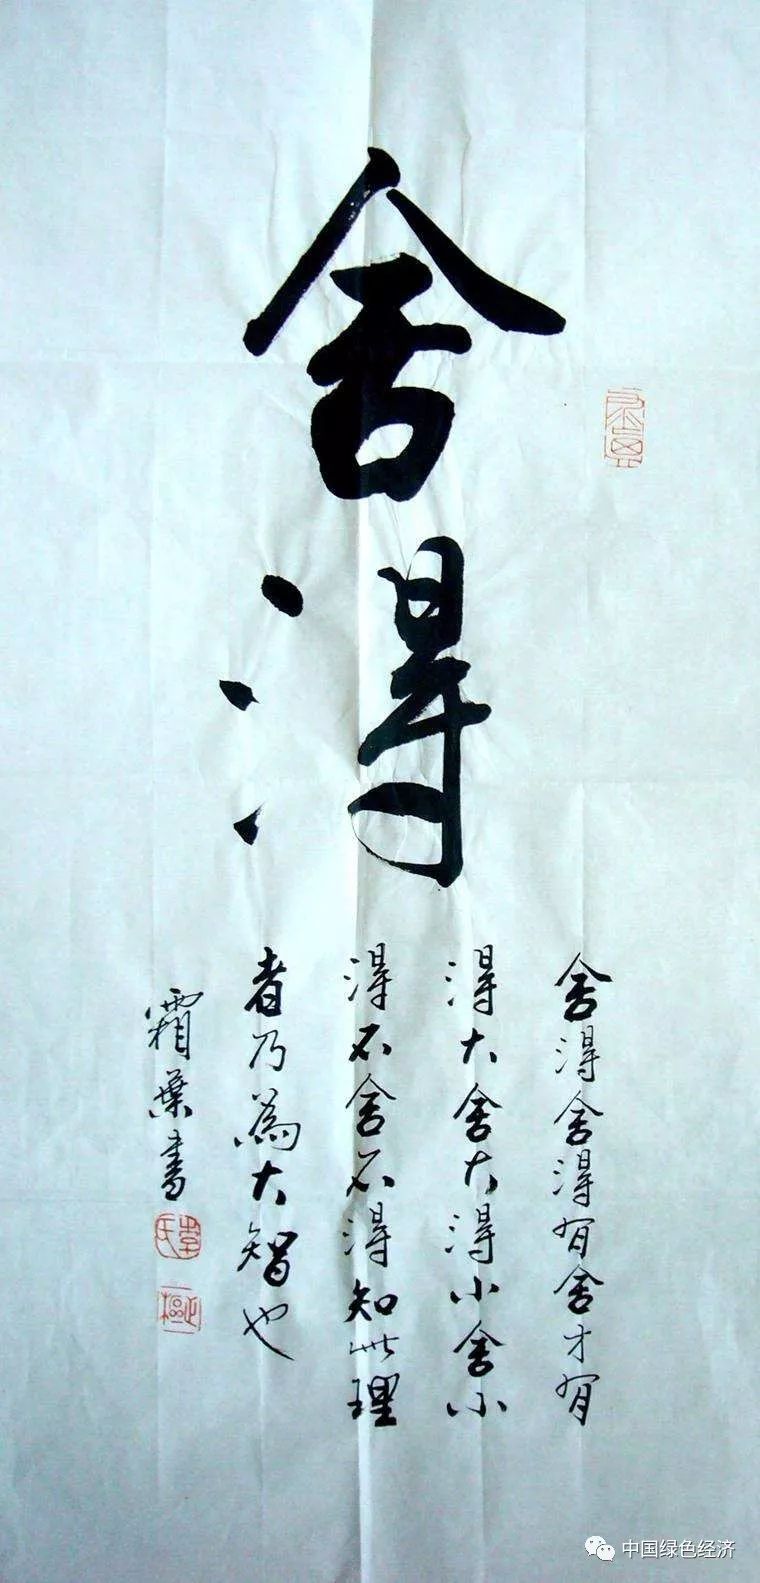 舍
得
舍得舍得有舍才有
得大舍大得小舍小
得不舍不得知此理
者乃為大智也
霜葉書
中国绿色经济